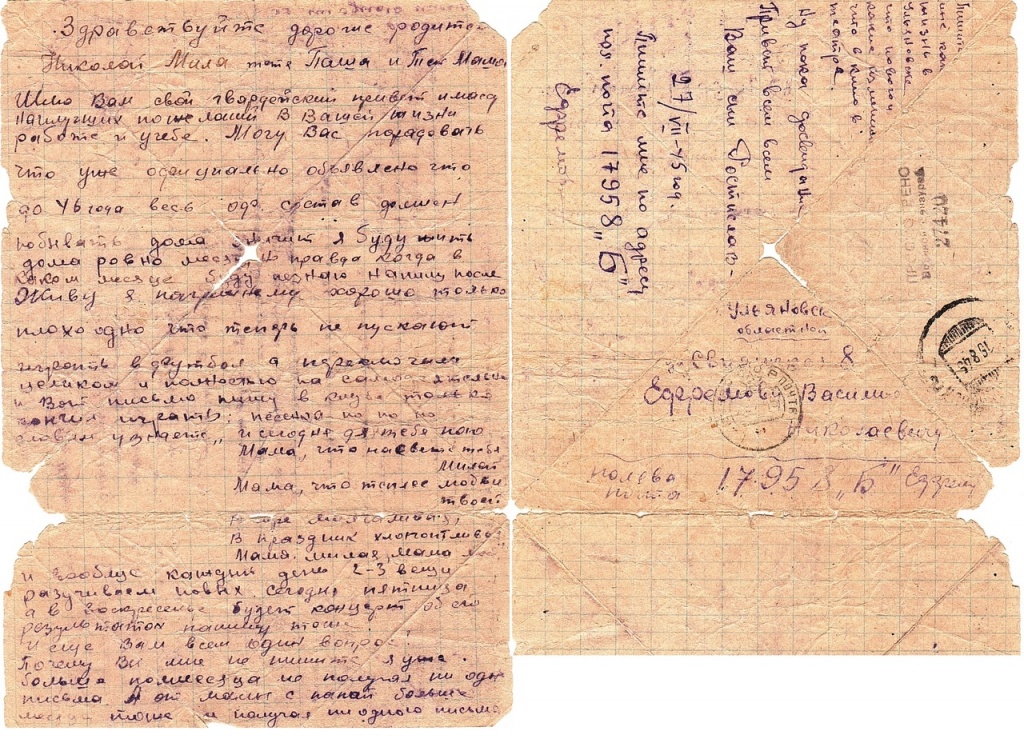 Здравствуйте дорогие родители
Николай Мила тетя Паша и Тет Маша
Шлю Вам свой гвардейский привет и массу
наилучших пожеланий в Вашей жизни
работе и учебе. Могу Вас порадовать
что уже официально объявлено что
до 46 года весь оф. состав должен
побывать дома значит я буду жить
дома ровно месяц, но правда когда в
каком месяце буду незнаю напишу после
Живу я по прежнему хорошо только
плохо одно что теперь не пускают
играть в футбол а переключили
целиком и полностью на самодеятельн
и Вот письмо пишу в клубе только
кончил играть: песенка по
словам узнаете,, и сегодня для тебя пою
Мама, что на свете тебя
милей
Мама, что теплее любви
твоей
В горе молчалива,
В праздник хлопотлива
Мама милая мама
и вообще каждый день 2-3 вещи
разучиваем новых сегодня пятница
а в воскресенье будет концерт об его
результатах напишу тоже.
И еще Вам всем один вопрос,
Почему Вы мне не пишите я уже
больше полмесяца не получал ни одн
письма А от мамы с папой больше
месяца тоже не получал ни одного письма
Пишите
мне как
жизнь в
Ульяновске
что нового
что в кино в
театре.
Ну пока досвидание
Привет всем всем
Ваш сын Ростислав-
27/VII-45 год.
Пишите мне по адресу
пол. почта 17958 „Б"
Ефремов
Ульяновск
областной
8
Ефремову Василию
Николаевичу
полевая
почта 17958 „Б" Ефрему
15 8 45